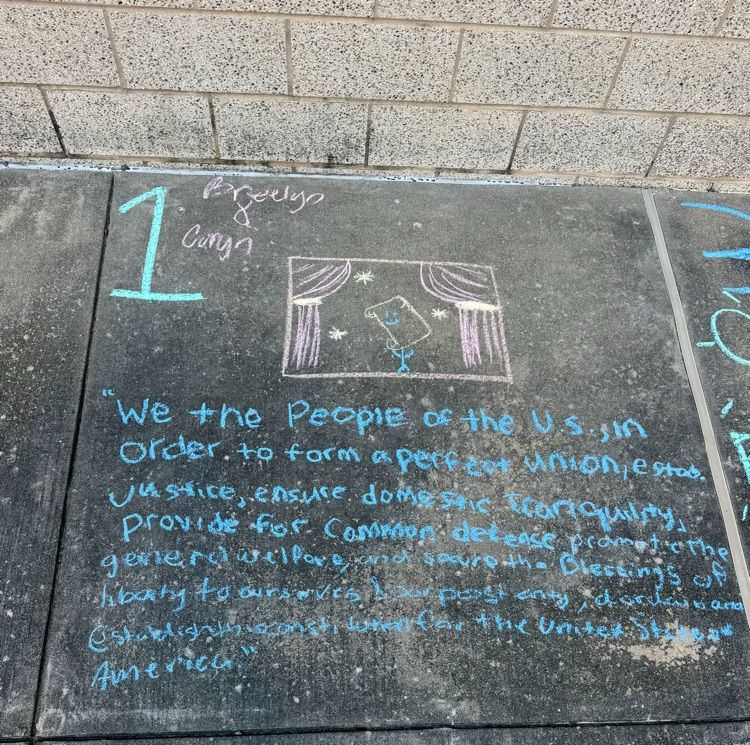 1
Caryn
"We the People of the U.S., in
order to form a perfect union, estab.
justice, ensure domestic Tranquility,
Provide for Common defense promote the
general welfare, and secure the Blessings of
liberty to ourselves & our posterity, do ordain and
establish this constitution for the United States of
America."